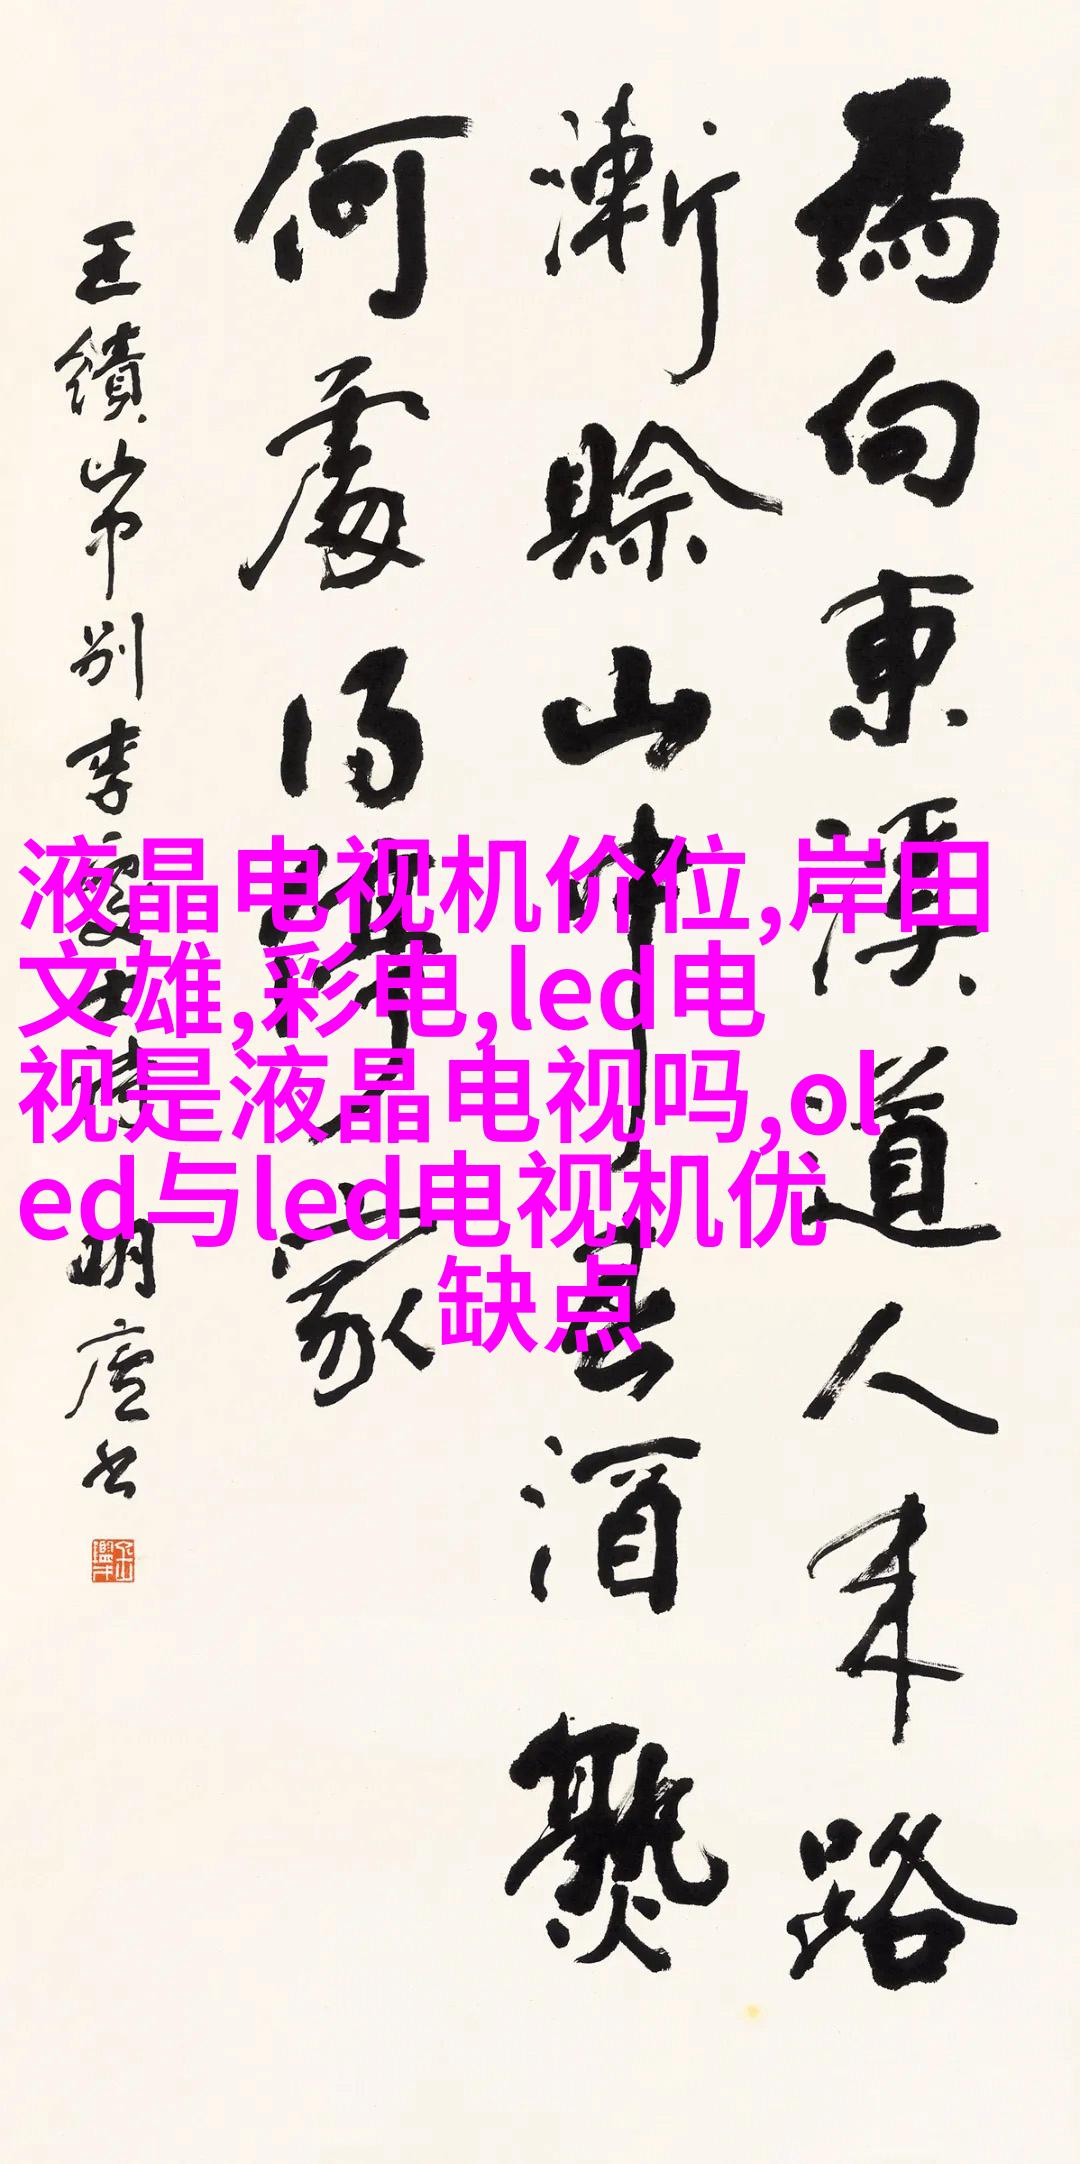 為向東溪道人來路
漸賒山中春酒熟
何處得停家
王績山中別李處士詩 明廬書
液晶电视机价位,岸田
文雄,彩电,led电
视是液晶电视吗,ol
ed与led电视机优
缺点